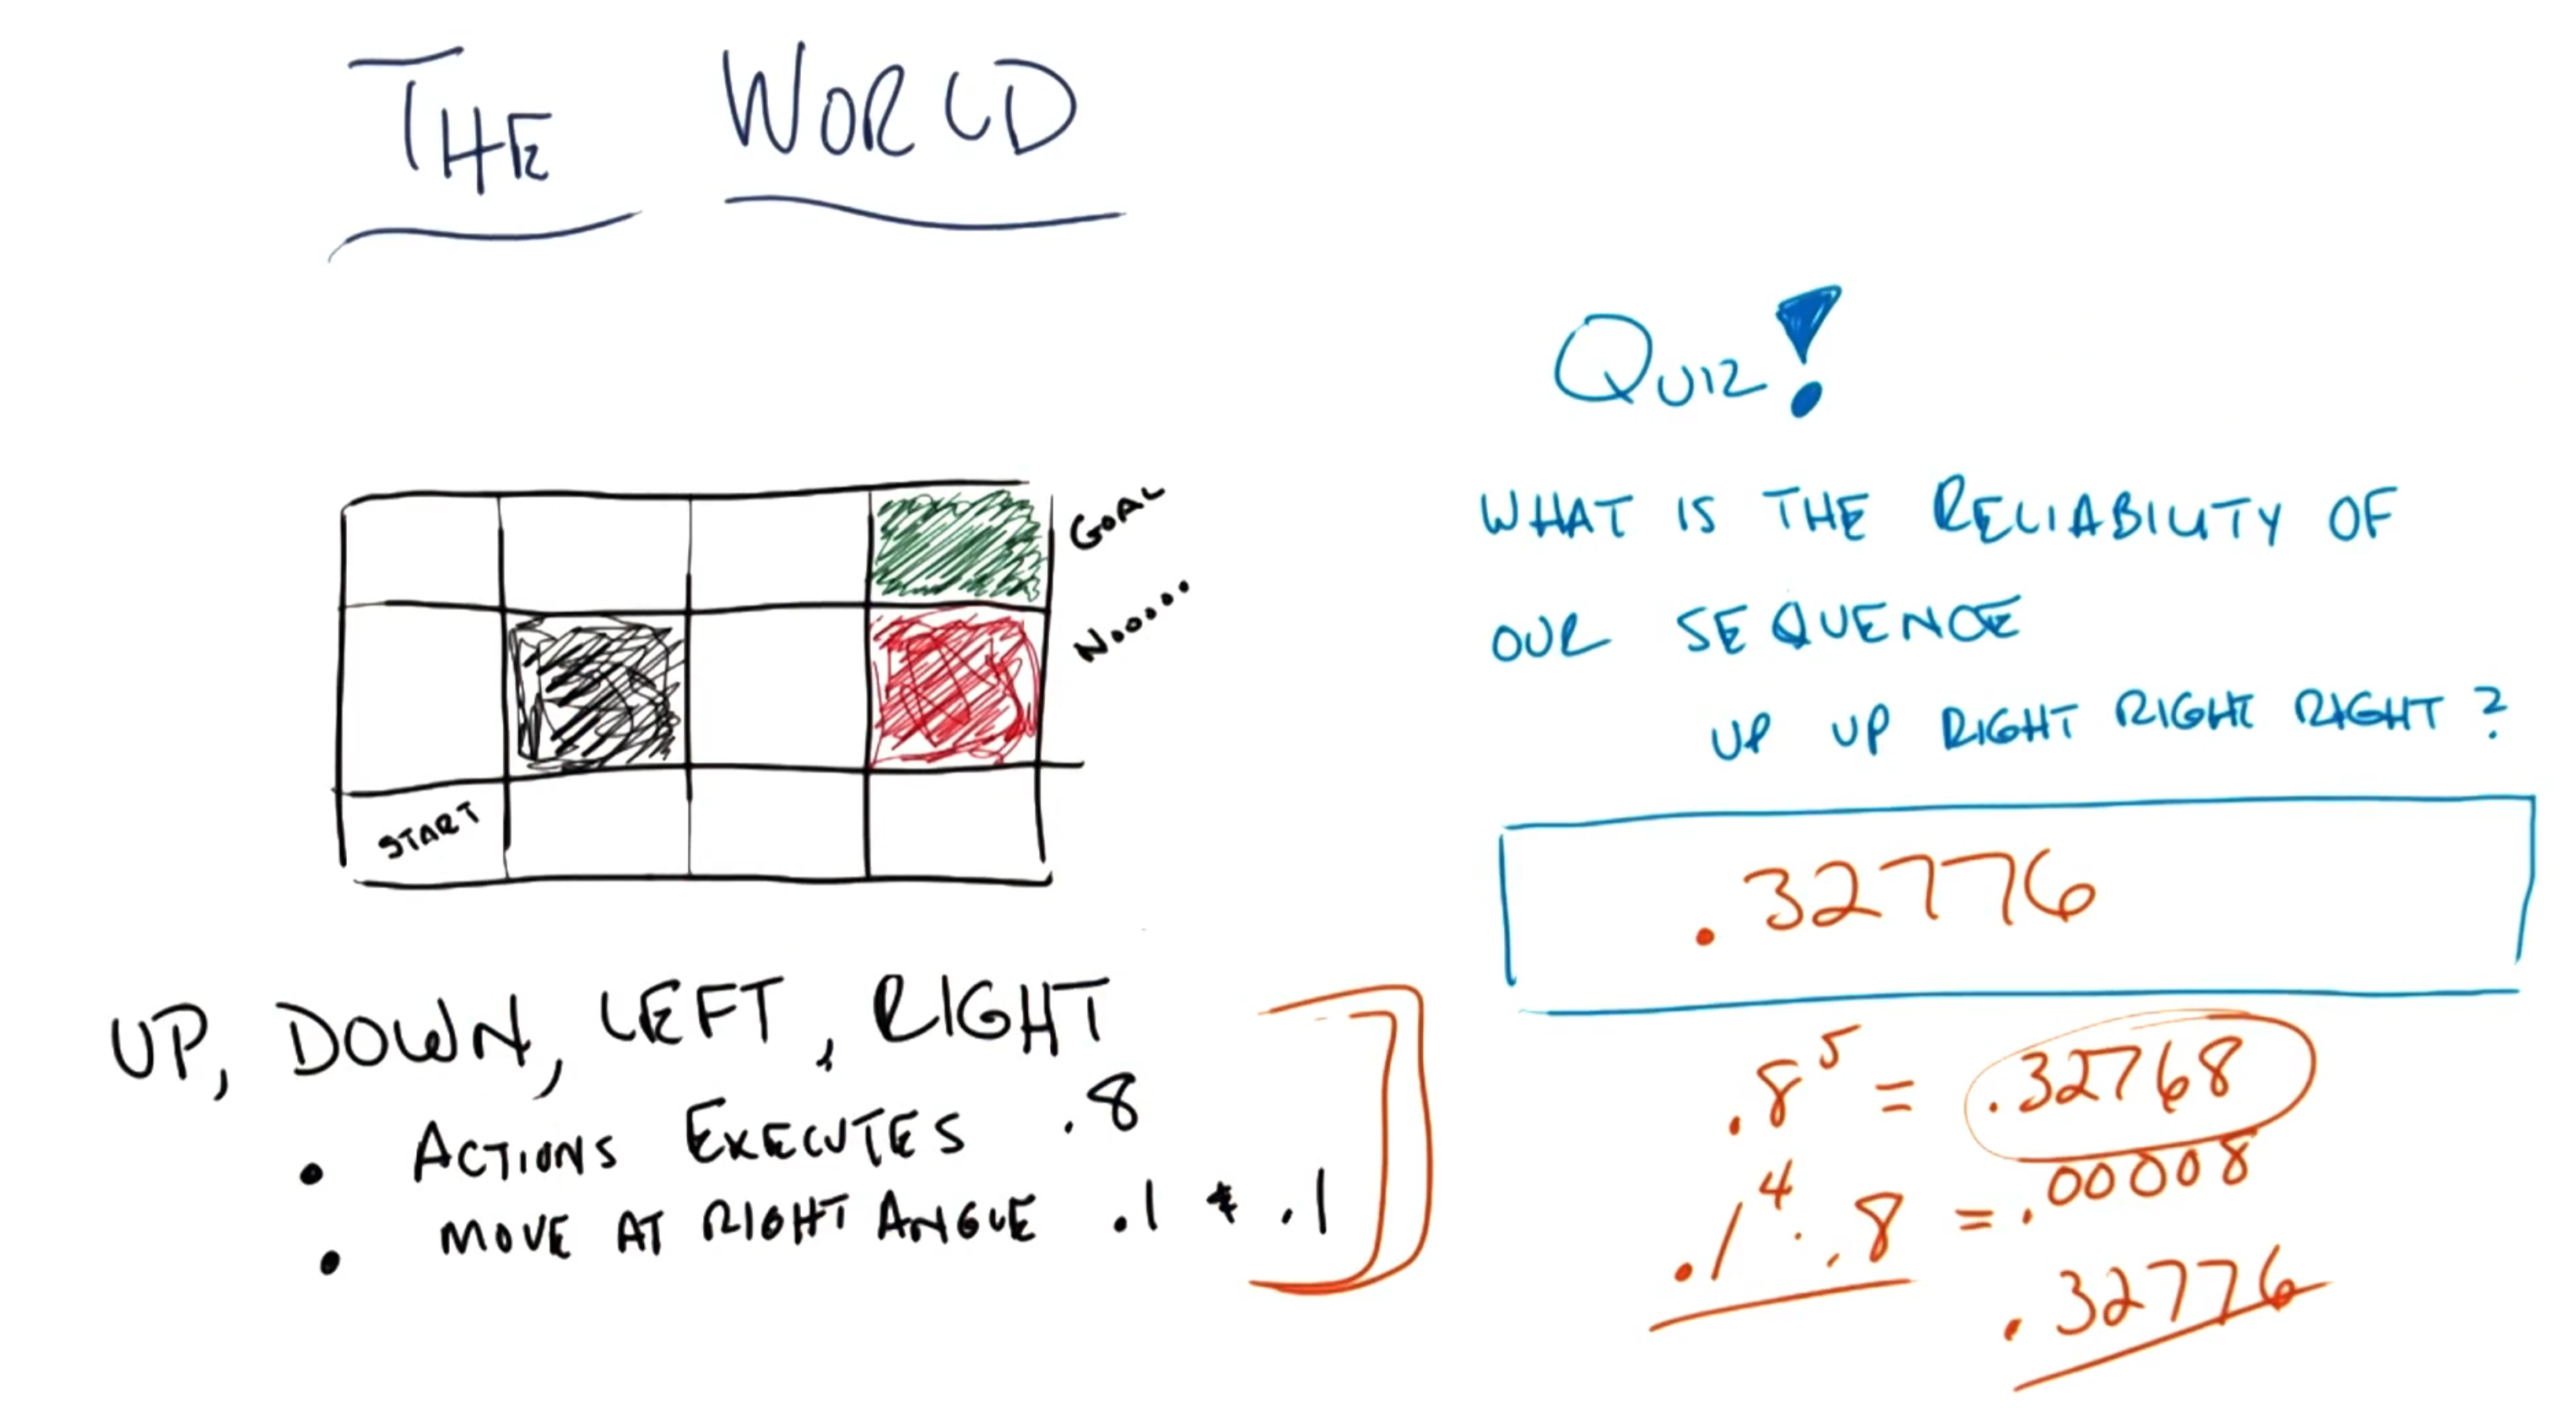 THE WORLD
GOAL
Noo....
START
UP, DOWN, LEFT, RIGHT
• ACTIONS EXECUTES .8
• MOVE AT RIGHT ANGLE .1 & .1
QUIZ!
WHAT IS THE RELIABILITY OF
OUR SEQUENCE
UP UP RIGHT RIGHT RIGHT?
.32776
.8⁵ = .32768
.1⁴ · .8 = .00008
.32776